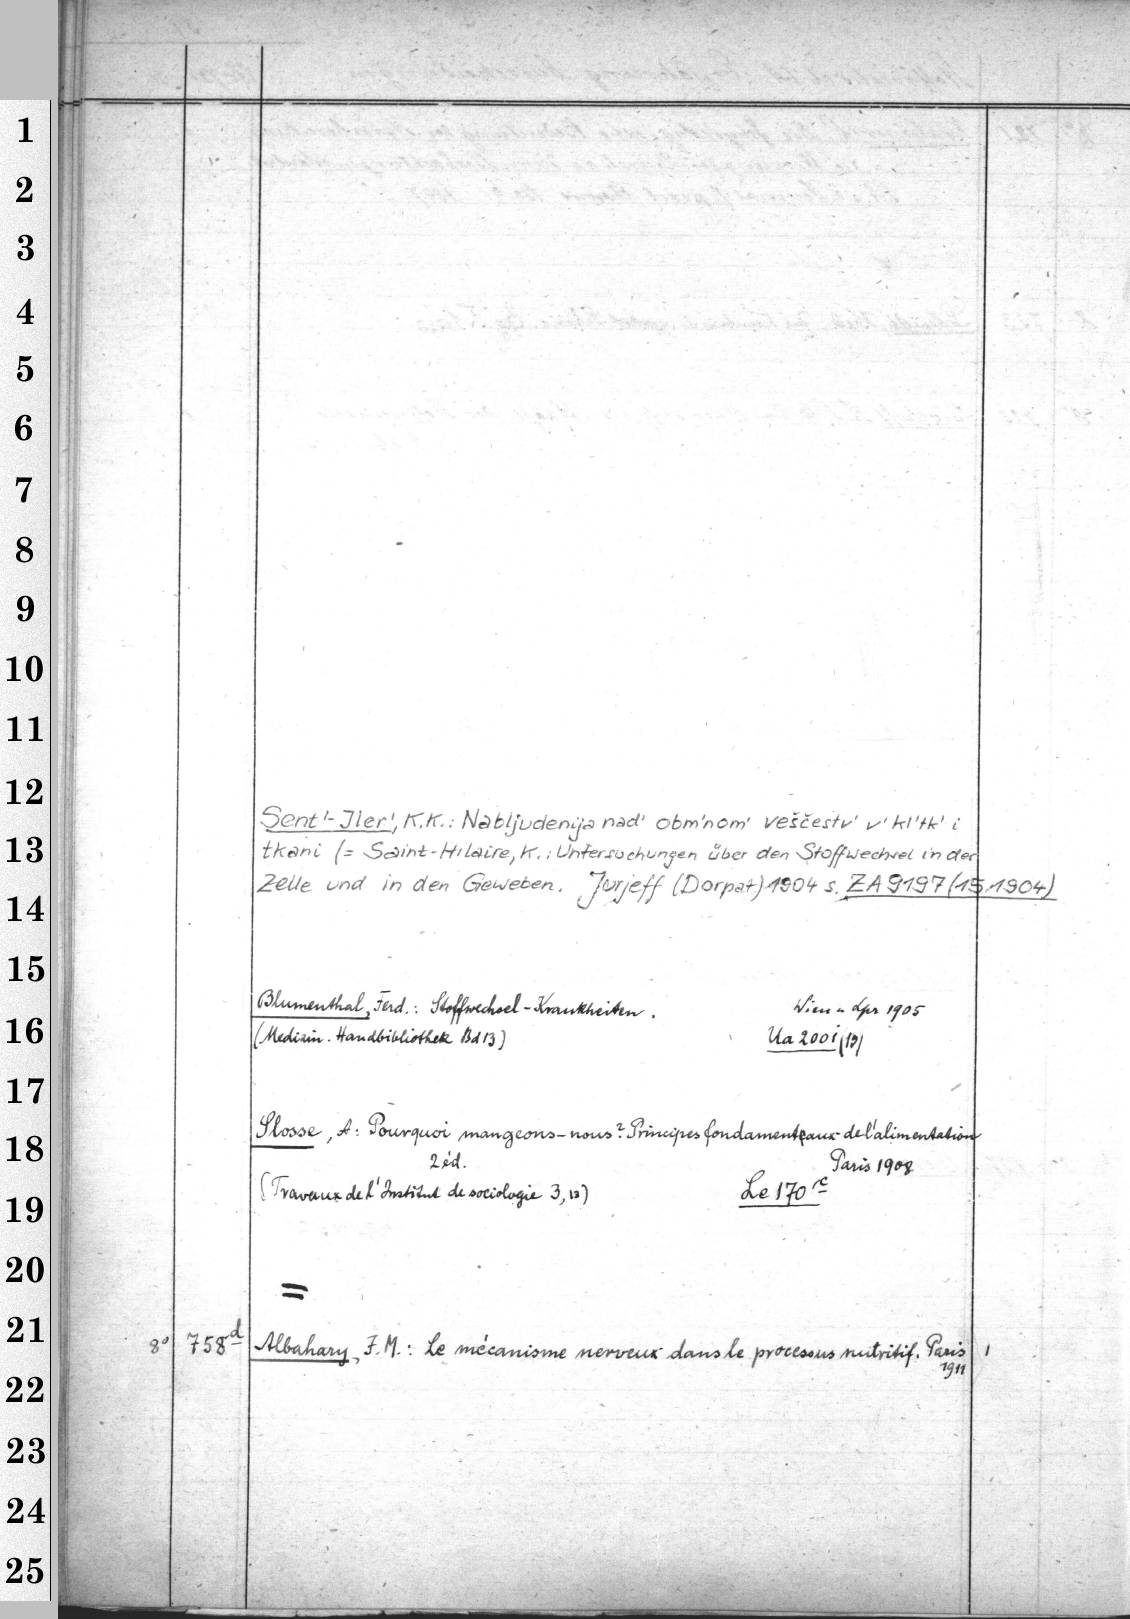 1
2
3
4
5
6
7
8
9
10
11
12
13
14
15
16
17
18
19
20
21
22
23
24
25
Sent'-Iler', K.K.: Nabljudenija nad' obm'nom' veščestv' v' kl'tk' i
tkani (= Saint-Hilaire, K.: Untersuchungen über den Stoffwechsel in der
Zelle und in den Geweben. Jurjeff (Dorpat) 1904 s. ZA 9197 (15,1904)
Blumenthal, Ferd.: Stoffwechsel-Krankheiten. Wien u Lpz 1905
(Medizin. Handbibliothek Bd 13) Ua 200i (13)
Slosse, A: Pourquoi mangeons-nous? Principes fondamentaux de l'alimentation
2 éd. Paris 1908
(Travaux de l'Institut de sociologie 3, 13) Le 170 c
=
8° 758 d Albahary, J.M.: Le mécanisme nerveux dans le processus nutritif. Paris 1
1911